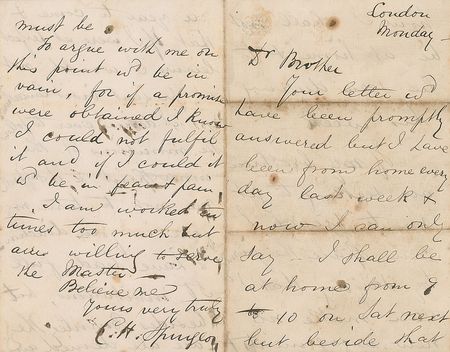 London
Monday —
Dr Brother
Your letter wd
have been promptly
answered but I have
been from home every
day last week &
now I can only
say — I shall be
at home from 9
to 10 on Sat next
but beside that
must be
To argue with me on
this point wd be in
vain, for if a promise
were obtained I know
I could not fulfil
it and if I could it
wd be in fear & pain
I am worked ten
times too much but
willing to serve
the Master
Believe me
Yours very truly
C. H. Spurgeon